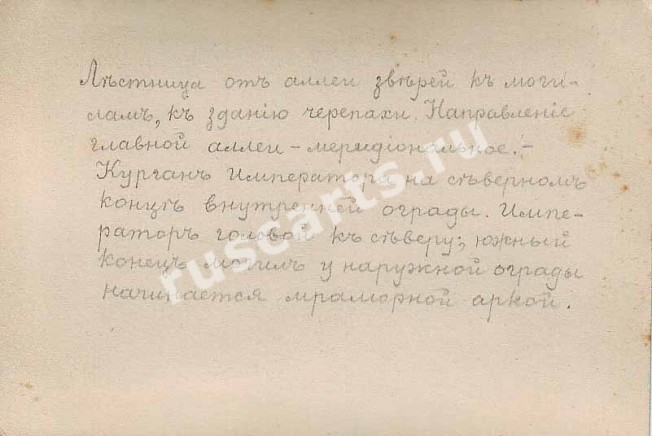 Лѣстница отъ аллеи звѣрей къ моги-
ламъ, къ зданію черепахи. Направленіе
главной аллеи – меридіональное. –
Курганъ Императора на сѣверномъ
концѣ внутренней ограды. Импе-
раторъ головой къ сѣверу; южный
конецъ могилъ у наружной ограды
начинается мраморной аркой.
ruscarts.ru